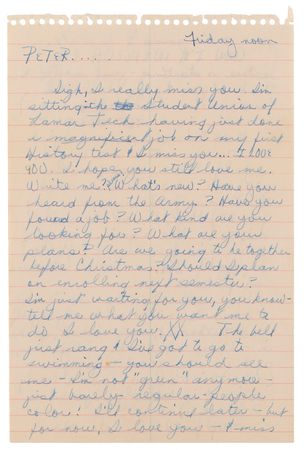 Friday noon
PETER.....
Sigh, I really miss you. I'm
sitting the Student Union of
Lamar Tech having just done
a magnificent job on my first
History test! I miss you... I LOVE
YOU. I hope you still love me.
Write me! What's new? Have you
heard from the Army? Have you
found a job? What kind are you
looking for? What are your
plans? Are we going to be together
before Christmas? Should I plan
on enrolling next semester?
I'm just waiting for you, you know-
tell me what you want me to
do I love you! XX The bell
just rang & I've got to go to
swimming - you should see
me - I'm not "green" anymore -
just barely - regular - people
color! I'll continue later - but
for now, I love you - & miss